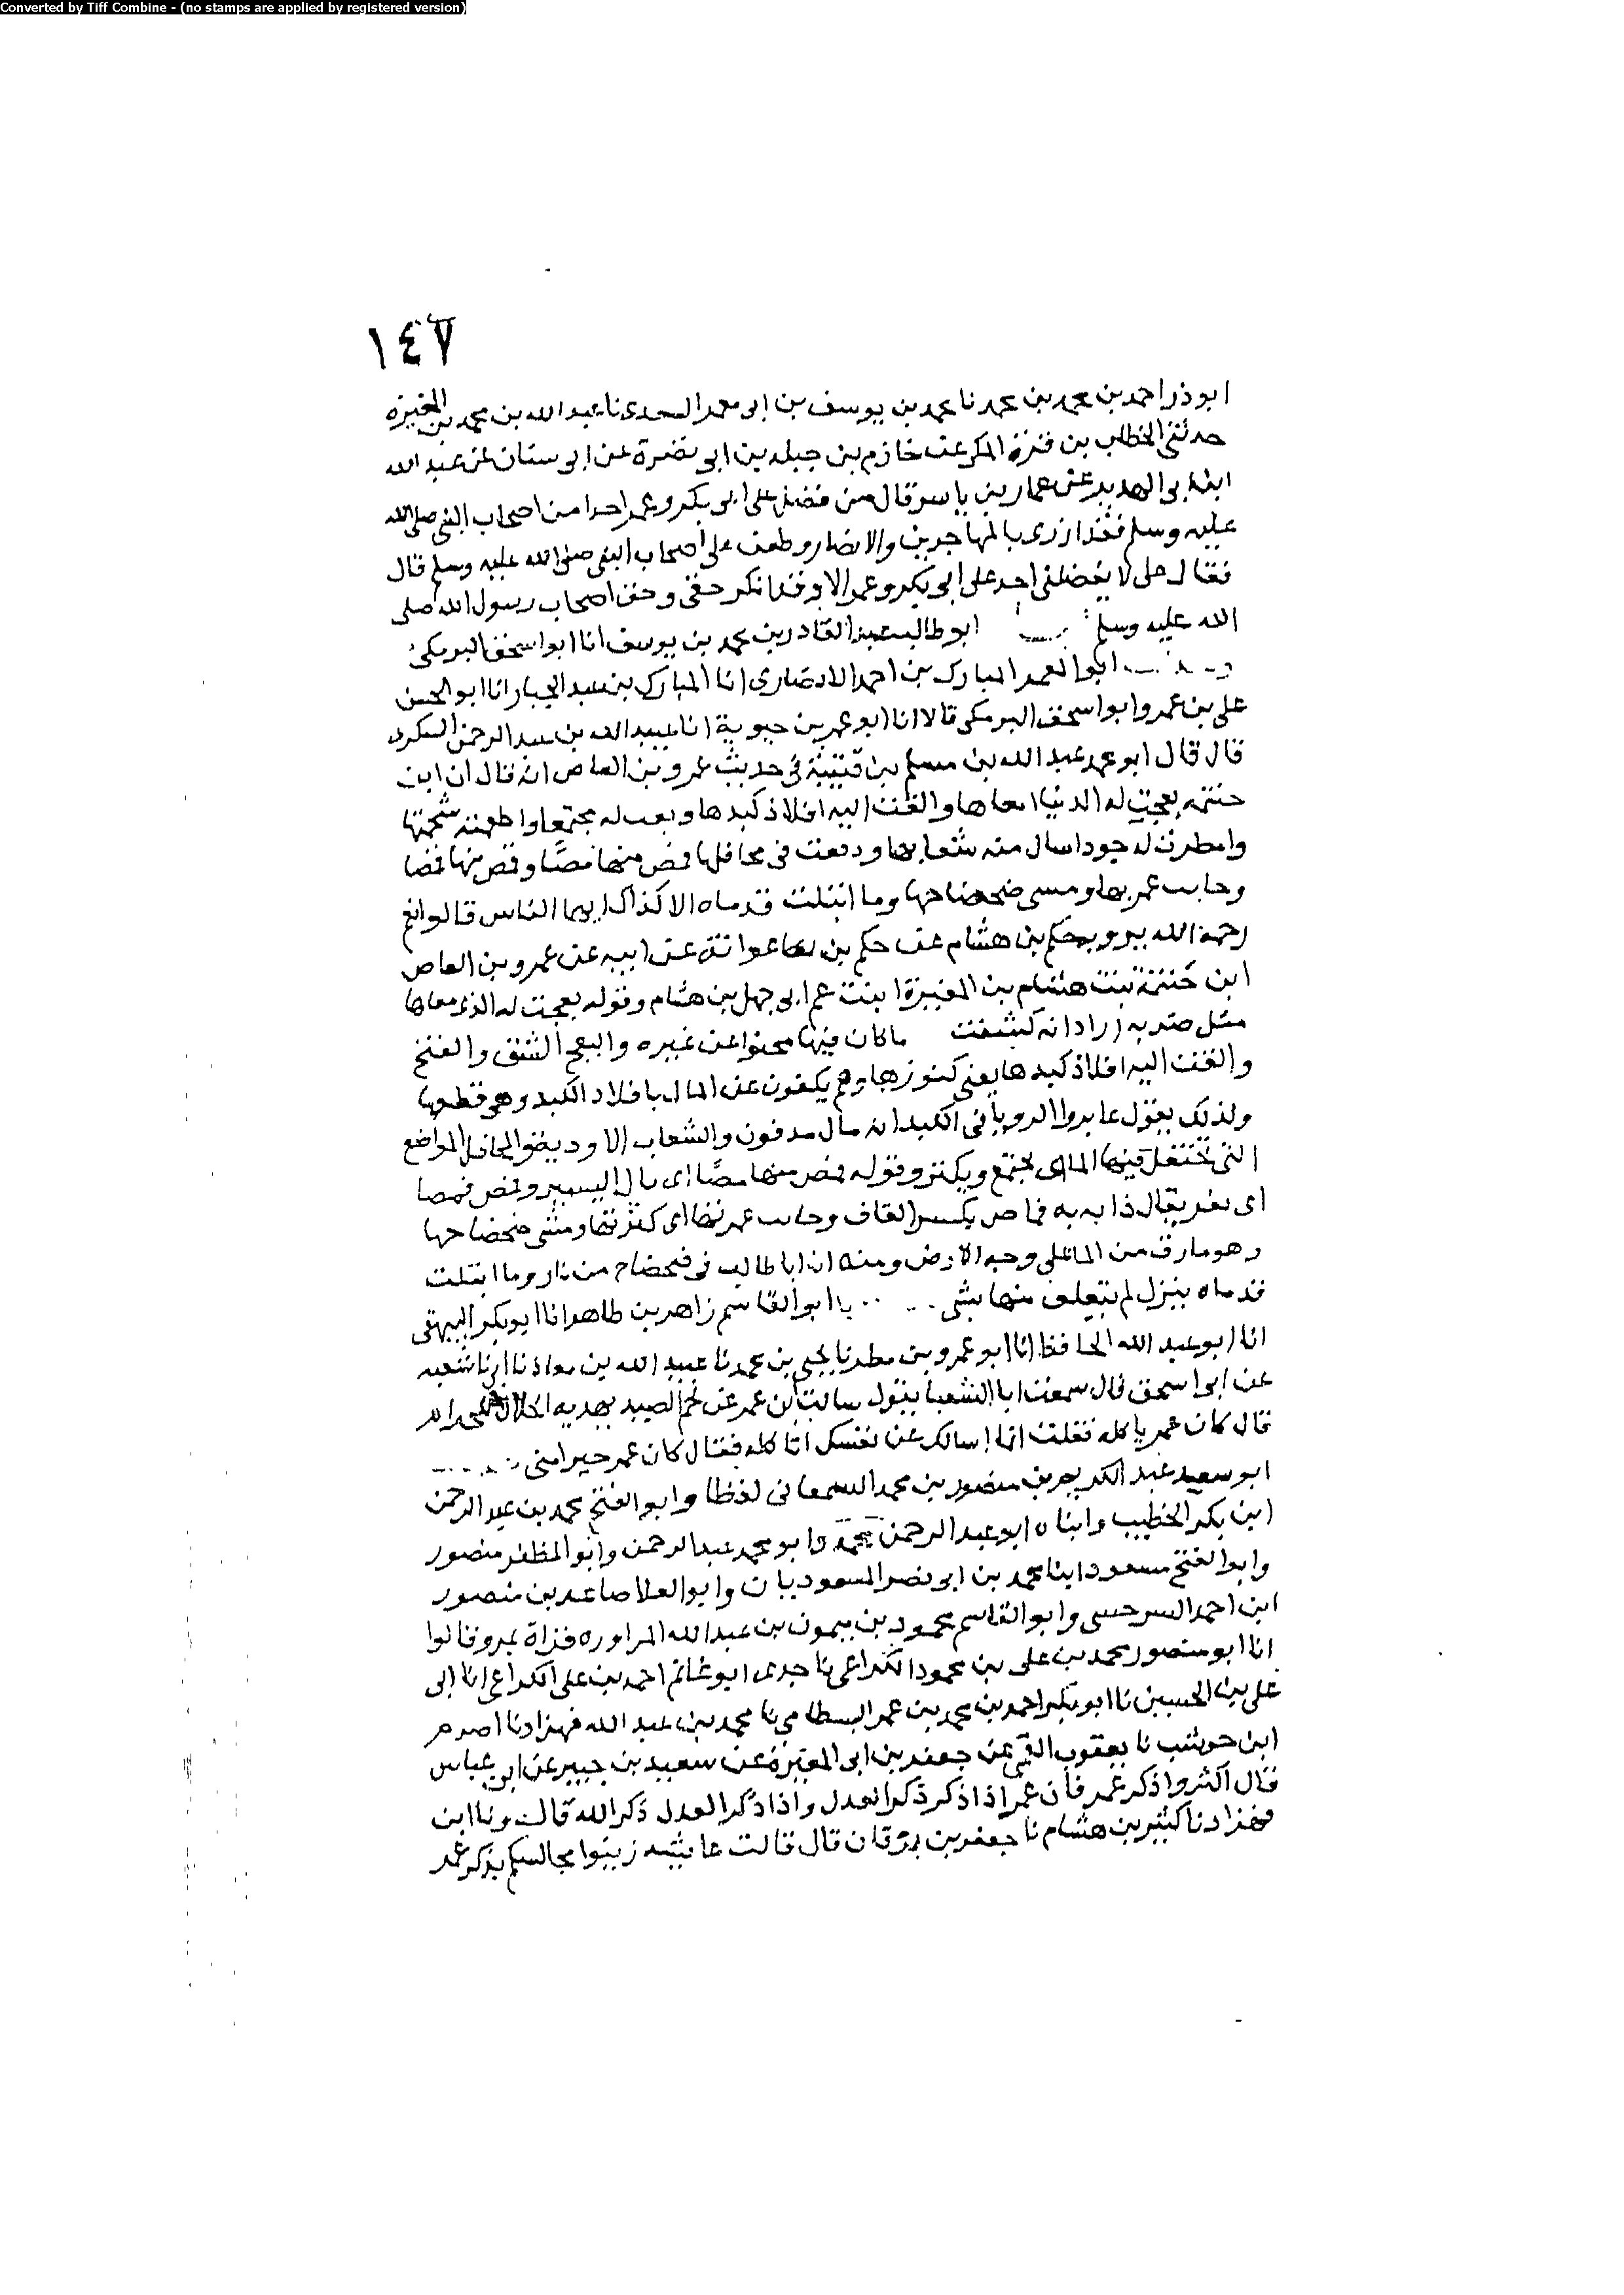 Converted by Tiff Combine - (no stamps are applied by registered version)
١٤٧
ابو ذر احمد بن محمد بن محمد نا محمد بن يوسف بن ابى معمر السعدى نا عبد الله بن محمد بن المغيرة
حدثنى الخطاب بن عن خازم بن جبله بن ابى نضرة عن ابى سنان عن عبد الله
ابن ابى الهديد عن عمار بن ياسر قال من فضل على ابى بكر وعمر احدا من اصحاب النبى صلى الله
عليه وسلم فقد ازرى بالمهاجرين والانصار وطعن على اصحاب النبى صلى الله عليه وسلم قال
فقال على لا يفضلنى احد على ابى بكر وعمر الا وقد انكر حقى وحق اصحاب رسول الله صلى
الله عليه وسلم ابو طالب عبد القادر بن محمد بن يوسف انا ابو اسحق البرمكى
ابو المعمر المبارك بن احمد الانصارى انا المبارك بن عبد الجبار انا ابو الحسن
على بن عمر وابو اسحق البرمكى قالا انا ابو عمر بن حيوية انا عبيد الله بن عبد الرحمن السكرى
قال قال ابو محمد عبد الله بن مسلم بن قتيبة فى حديث عمرو بن العاص انه قال ان ابن
حنتمه بعجت له الدنيا امعاها والقت اليه افلاذ كبدها و له مجتمعا واطعمته شحمتها
وامطرت له جودا سال منه شعابها ودفعت فى محافلها فمص منها مصًا وقمص منها قمصا
وجانب غمرتها ومشى ضحضاحها وما ابتلت قدماه الا كذاك ايها الناس قالوا نعم
رحمه الله يرويه حكم بن هشام عن حكم بن عوانة عن ابيه عن عمرو بن العاص
ابن حنتمة بنت هشام بن المغيرة ابنت عم ابى جهل بن هشام وقوله بعجت له الدنيا معاها
مثل ضربه اراد انه كشفت ما كان فيها مخبوا عن غيره والبعج الشق والفتح
والقت اليه افلاذ كبدها يعنى كنوزها وهم يكنون عن المال بافلاد الكبد وهى قطعها
ولذلك يقول عابروا الرويا فى الكبد انه مال مدفون والشعاب الاوديه والمحافل المواضع
التى تحتفل فيها الماى يجتمع ويكثر وقوله فمص منها مصًا اى نال اليسير وقمص قمصا
اى نفر يقال دابه به قماص بكسر القاف وجانب غمرتها اى كثرتها ومشى ضحضاحها
وهو مارق من الما على وجه الارض ومنه ان ابا طالب فى ضحضاح من نار وما ابتلت
قدماه يقول لم يتعلق منها بشى ابو القاسم زاهر بن طاهر انا ابو بكر البيهقى
انا ابو عبد الله الحافظ انا ابو عمرو بن مطر نا يحيى بن محمد نا عبيد الله بن معاذ نا ابى نا شعبه
عن ابى اسحق قال سمعت ابا الشعثا يقول سالت ابن عمر عن لحم الصيد يهديه الحلال للحرام
فقال كان عمر ياكله فقلت انما اسالك عن نفسك اتاكله فقال كان عمر خيرا منى
ابو سعيد عبد الكريم بن منصور بن محمد السمعانى لفظا وابو الفتح محمد بن عبد الرحمن
ابن بكر الخطيب وابناه ابو عبد الرحمن محمد وابو محمد عبد الرحمن وابو المظفر منصور
وابو الفتح مسعود ابنا محمد بن ابى نصر المسعوديان وابو العلا صاعد بن منصور
ابن احمد السرخسى وابو القاسم محمود بن ميمون بن عبد الله المراوره قراة بمرو قالوا
انا ابو منصور محمد بن على بن محمود الكراعى نا جدى ابو غانم احمد بن على الكراعى انا ابى
على بن الحسين نا ابو بكر احمد بن محمد بن عمر البسطامى نا محمد بن عبد الله قهزاد نا اصرم
ابن حوشب نا يعقوب القمى عن جعفر بن ابى المغيرة عن سعيد بن جبير عن ابن عباس
قال اكثروا ذكر عمر فان عمر اذا ذكر ذكر العدل واذا ذكر العدل ذكر الله قال ونا ابن
قهزاد نا كثير بن هشام نا جعفر بن برقان قال قالت عايشه زينوا مجالسكم بذكر عمر